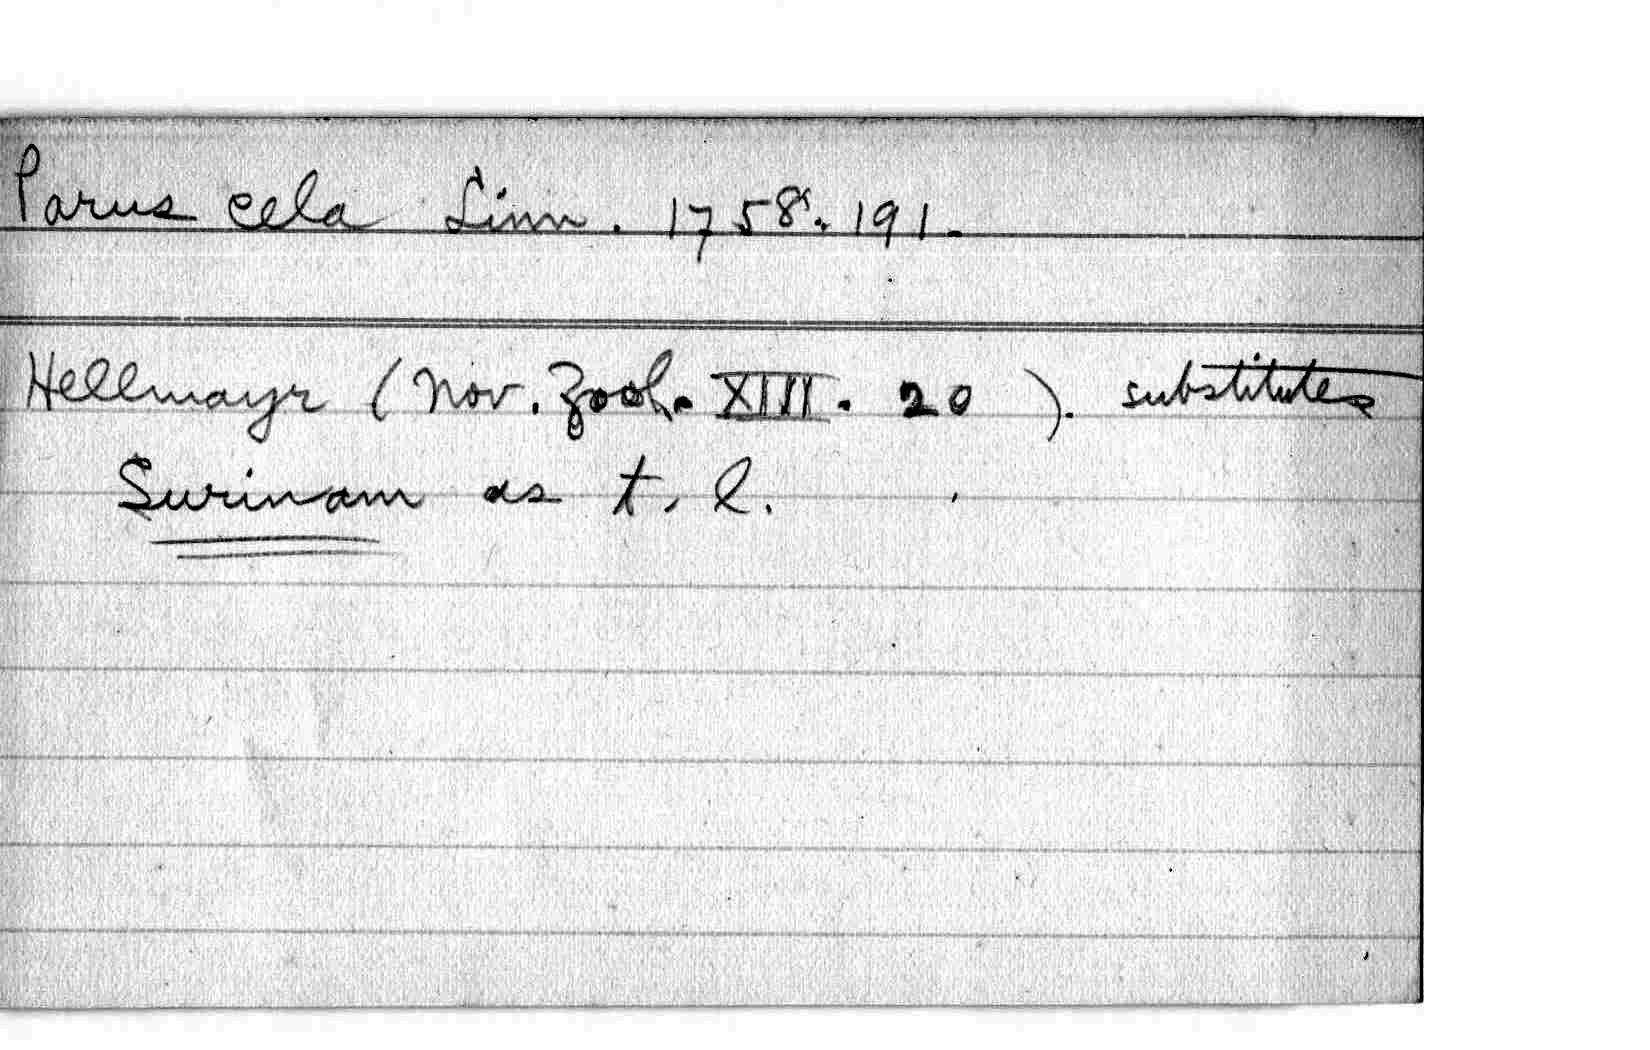 Parus cela Linn. 1758. 191.
Hellmayr (Nov. Zool. XIII. 20 ). substitutes
Surinam as t. l.